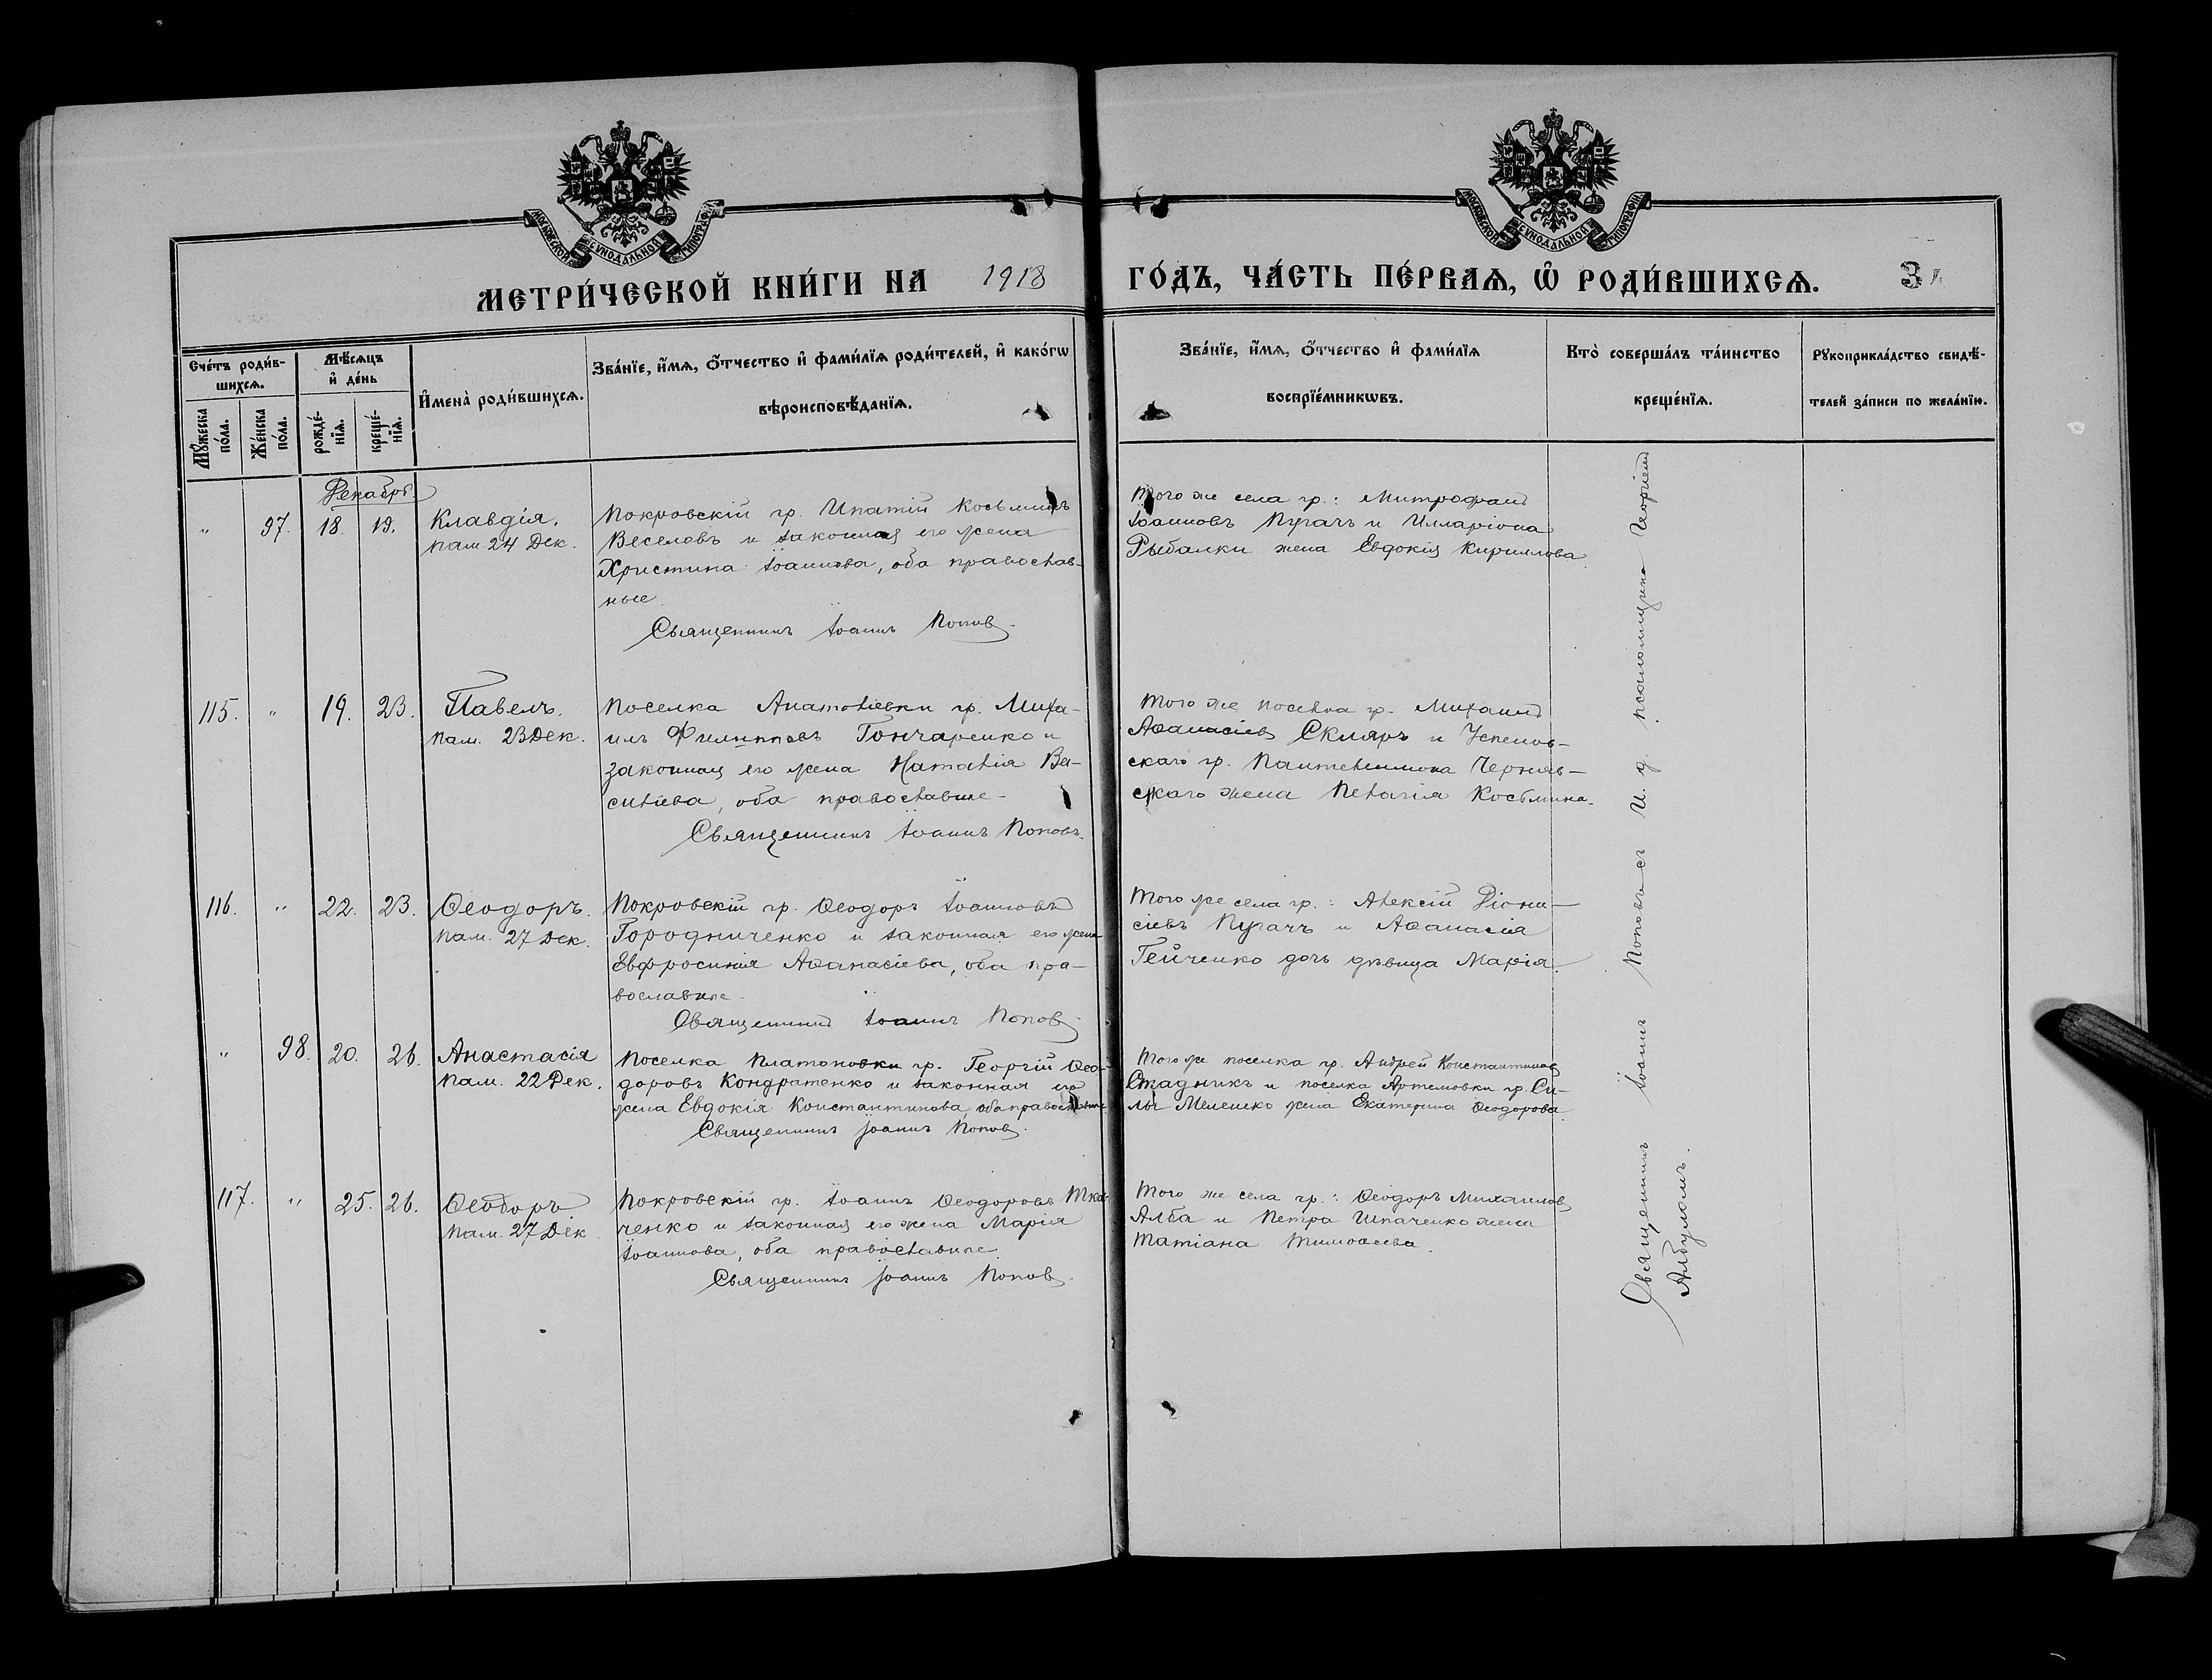 МОСКОВСКОЙ СѴНОДАЛЬНОЙ ТИПОГРАФІИ
МОСКОВСКОЙ СѴНОДАЛЬНОЙ ТИПОГРАФІИ
МЕТРИ́ЧЕСКОЙ КНИ́ГИ НА 1918 ГО́ДЪ, ЧА́СТЬ ПЕ́РВАѦ, Ѽ РОДИ́ВШИХСѦ.
Сче́тъ роди́в-
шихсѧ.
Мꙋ́жеска по́ла.
Же́нска по́ла.
Мѣ́сѧцъ
и҆ де́нь
рожде́-
нїѧ.
креще́-
нїѧ.
И҆мена̀ роди́вшихсѧ.
Зва́нїе, и҆́мѧ, ѻ҆́тчество и҆ фами́лїѧ роди́телей, и҆ како́гѡ
вѣроисповѣ́данїѧ.
Зва́нїе, и҆́мѧ, ѻ҆́тчество и҆ фами́лїѧ
воспрїе́мникѡвъ.
Кто̀ соверша́лъ та́инство
креще́нїѧ.
Рꙋкоприкла́дство свидѣ́-
телей за́писи по жела́нїю.
Декабрь
" 97. 18. 19.
Клавдія.
пам 24 Дек.
Покровскій гр. Ипатій Косьминъ
Веселовъ и законная его жена
Христина Іоаннова, оба православ-
ные
Священникъ Іоаннъ Попов
Того же села гр.: Митрофанъ
Іоанновъ Пугачъ и Илларіона
Рыбалки жена Евдокія Кириллова.
115. " 19. 23.
Павелъ.
пам. 23 Дек.
Поселка Анатоліевки гр. Миха-
илъ Филипповъ Гончаренко и
законная его жена Наталія Ва-
силіева, оба православные
Священникъ Іоаннъ Поповъ.
Того же поселка гр. Михаилъ
Аѳанасіевъ Скляръ и Успенов-
скаго гр. Пантелеимона Черняв-
скаго жена Пелагія Косьмина.
116. " 22. 23.
Ѳеодоръ.
пам. 27 Дек.
Покровскій гр. Ѳеодоръ Іоанновъ
Городниченко и законная его жена
Евфросинія Аѳанасіева, оба пра-
вославные.
Священникъ Іоаннъ Попов
Того же села гр.: Алексій Діони-
сіевъ Пугачъ и Аѳанасія
Гейченко дочь дѣвица Марія.
" 98. 20. 26.
Анастасія
пам. 22 Дек.
Поселка Платоновки гр. Георгій Ѳео-
доровъ Кондратенко и законная его
жена Евдокія Константинова, оба православные
Священникъ Іоаннъ Попов.
Того же поселка гр. Андрей Константиновъ
Стадникъ и поселка Артемовки гр. Си-
лы Мелешко жена Екатерина Ѳеодорова
117. " 25. 26.
Ѳеодоръ
пам. 27 Дек
Покровскій гр. Іоаннъ Ѳеодоровъ Тка-
ченко и законная его жена Марія
Іоаннова, оба православные.
Священникъ Іоаннъ Попов.
Того же села гр.: Ѳеодоръ Михаиловъ
Алба и Петра Шпаченко жена
Татіана Тимоѳеева.
Священникъ Іоаннъ Поповъ съ И. д. псаломщика Георгіемъ
Албуломъ.